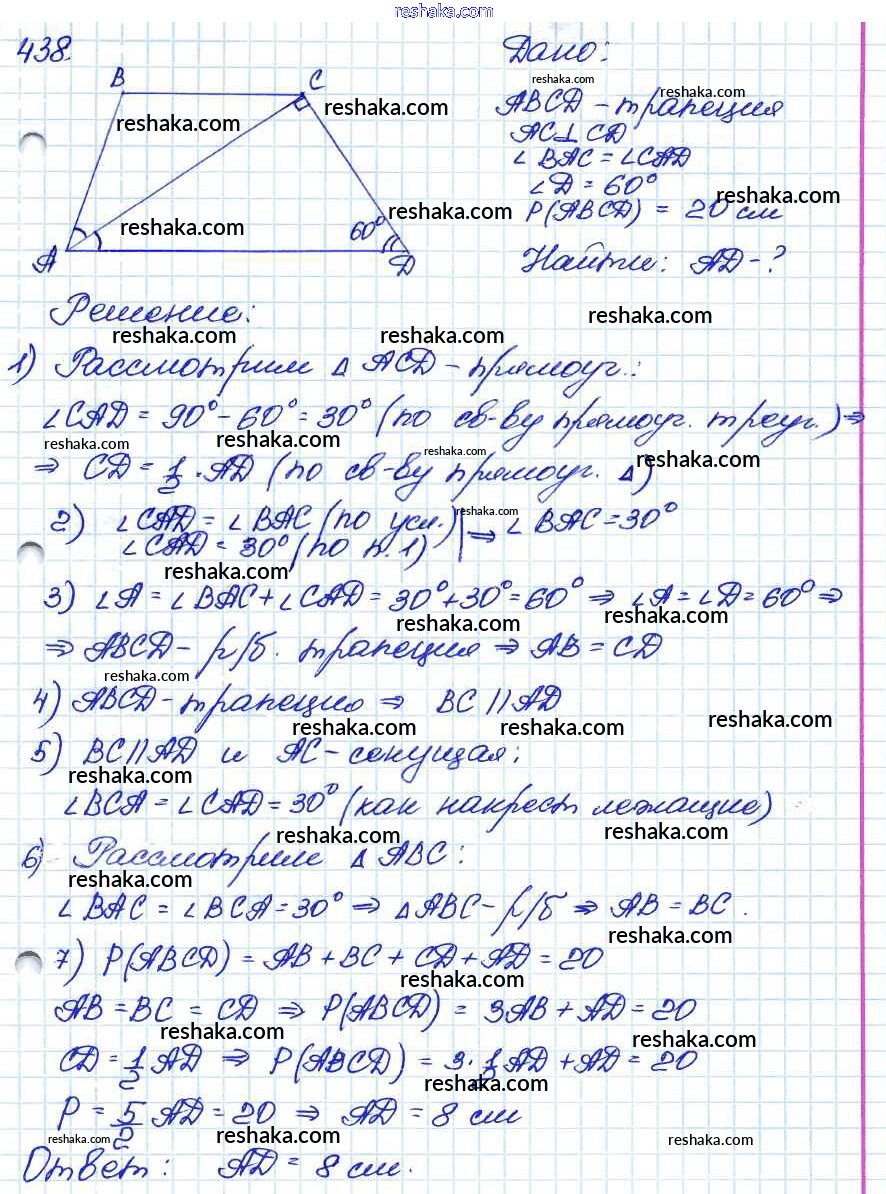 reshaka.com
438.
Дано:
B
C
reshaka.com
reshaka.com
reshaka.com
ABCD – трапеция
reshaka.com
AC⊥CD
∠BAC = ∠CAD
∠D = 60°
reshaka.com
reshaka.com
P(ABCD) = 20 см
reshaka.com
60°
A
D
Найти: AD - ?
Решение:
reshaka.com
reshaka.com
reshaka.com
1) Рассмотрим △ ACD – прямоуг.:
∠CAD = 90° - 60° = 30° (по св-ву прямоуг. треуг.) ⇒
reshaka.com
reshaka.com
reshaka.com
reshaka.com
⇒ CD = 1/2 · AD (по св-ву прямоуг. △)
reshaka.com
2) ∠CAD = ∠BAC (по усл.) | ⇒ ∠BAC = 30°
∠CAD = 30° (по п. 1)
reshaka.com
3) ∠A = ∠BAC + ∠CAD = 30° + 30° = 60° ⇒ ∠A = ∠D = 60° ⇒
reshaka.com
reshaka.com
⇒ ABCD – р/б. трапеция ⇒ AB = CD
reshaka.com
4) ABCD – трапеция ⇒ BC || AD
reshaka.com
reshaka.com
reshaka.com
5) BC || AD и AC – секущая;
reshaka.com
∠BCA = ∠CAD = 30° (как накрест лежащие)
reshaka.com
reshaka.com
6) Рассмотрим △ ABC:
reshaka.com
∠BAC = ∠BCA = 30° ⇒ △ABC – р/б ⇒ AB = BC.
reshaka.com
7) P(ABCD) = AB + BC + CD + AD = 20
reshaka.com
AB = BC = CD ⇒ P(ABCD) = 3AB + AD = 20
reshaka.com
reshaka.com
CD = 1/2 AD ⇒ P(ABCD) = 3 · 1/2 AD + AD = 20
reshaka.com
P = 5/2 AD = 20 ⇒ AD = 8 см
reshaka.com
reshaka.com
reshaka.com
Ответ: AD = 8 см.